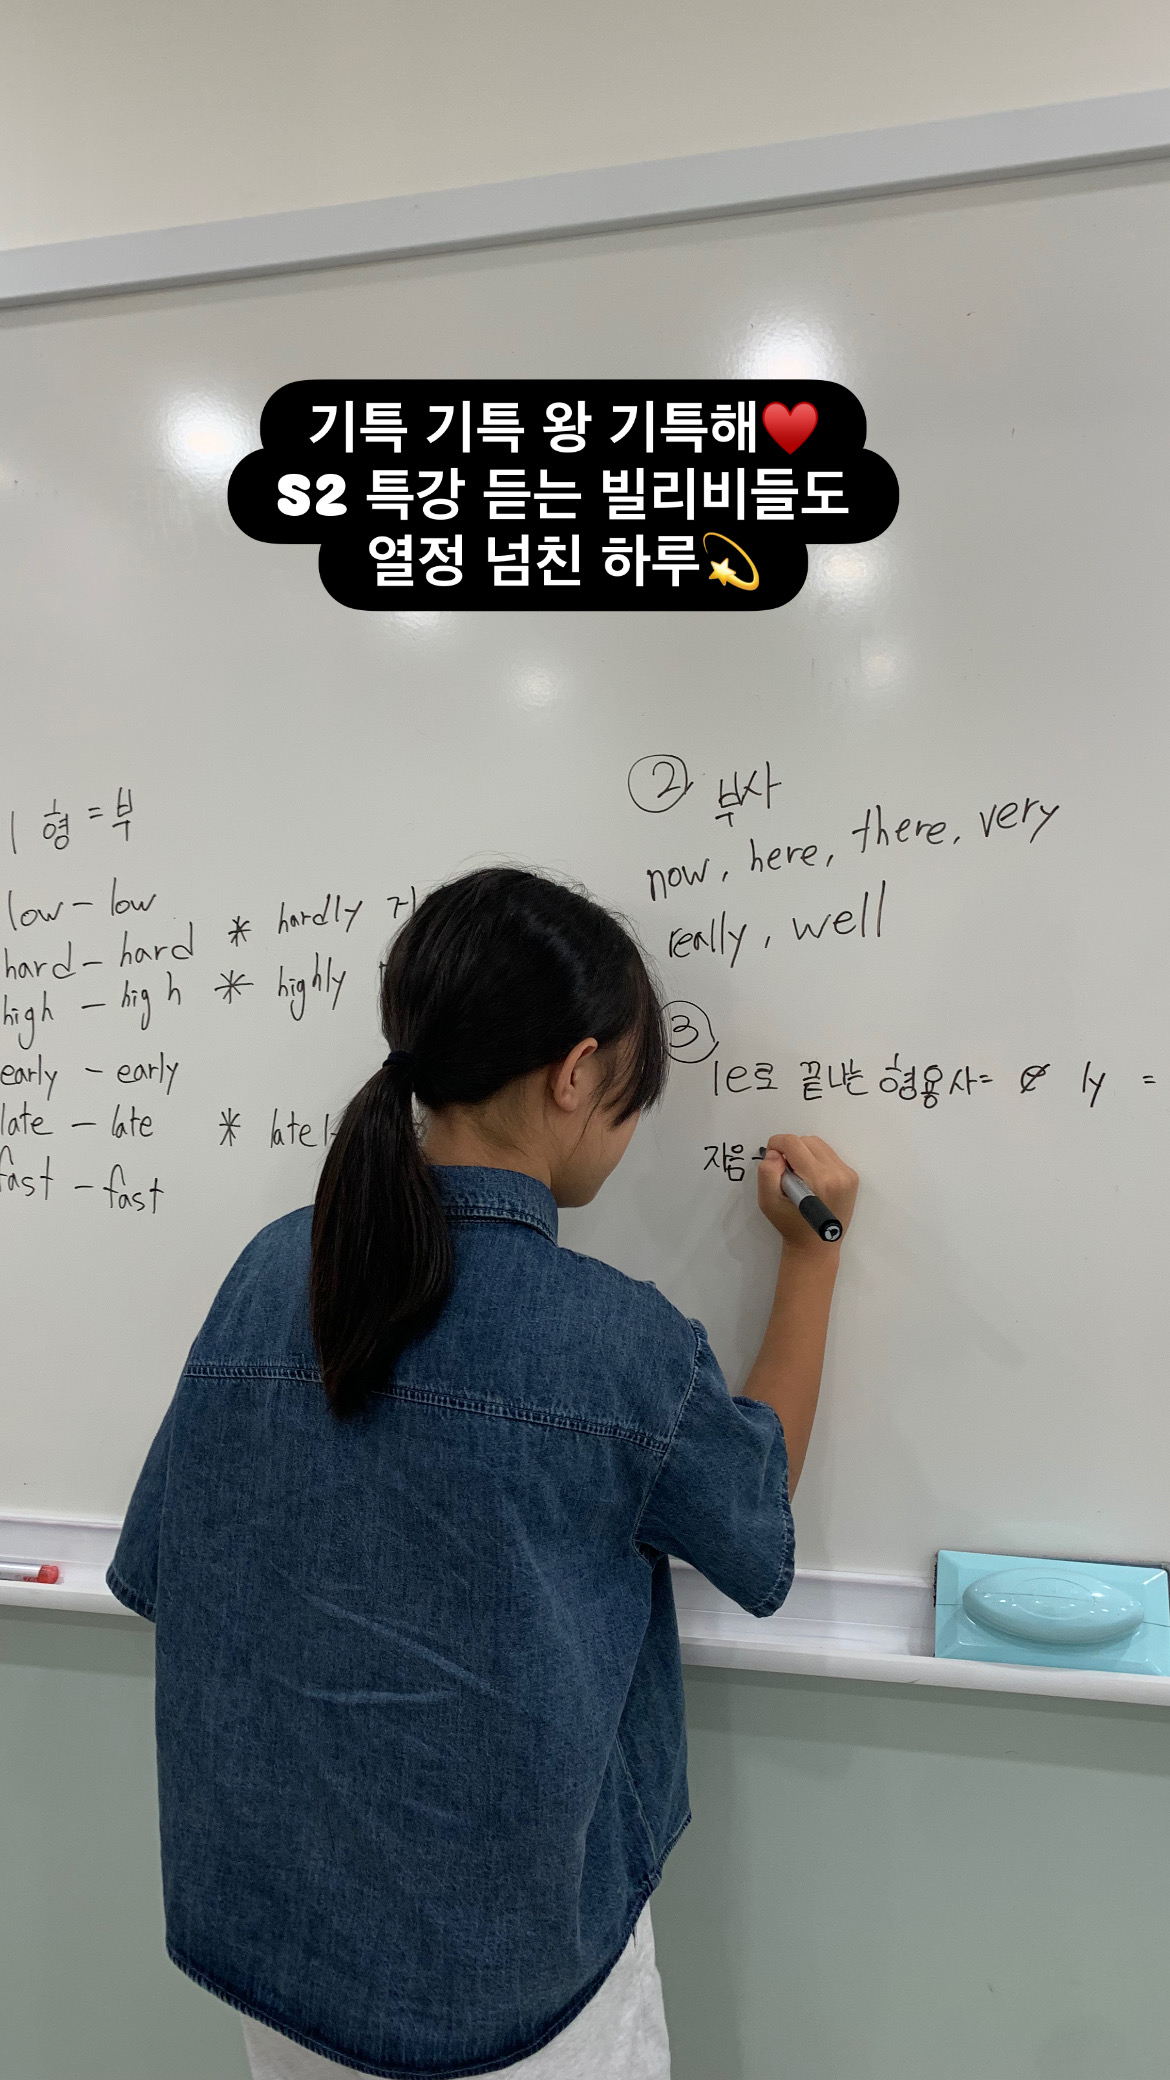 기특 기특 왕 기특해♥️
S2 특강 듣는 빌리비들도
열정 넘친 하루💫
1 형 = 부
low - low
hard - hard * hardly
high - high * highly
early - early
late - late *
fast - fast
② 부사
now, here, there, very
really, well
③
le로 끝나는 형용사 = e̸ ly =
자음